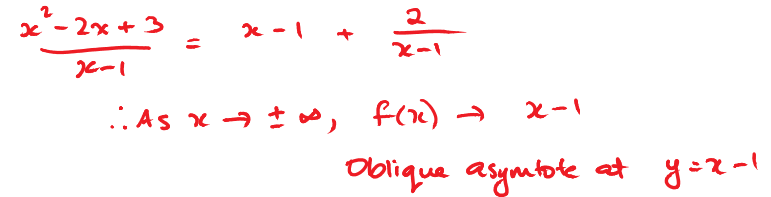 x² - 2x + 3 / x - 1 = x - 1 + 2 / x - 1
∴ As x → ± ∞, f(x) → x - 1
Oblique asymtote at y = x - 1